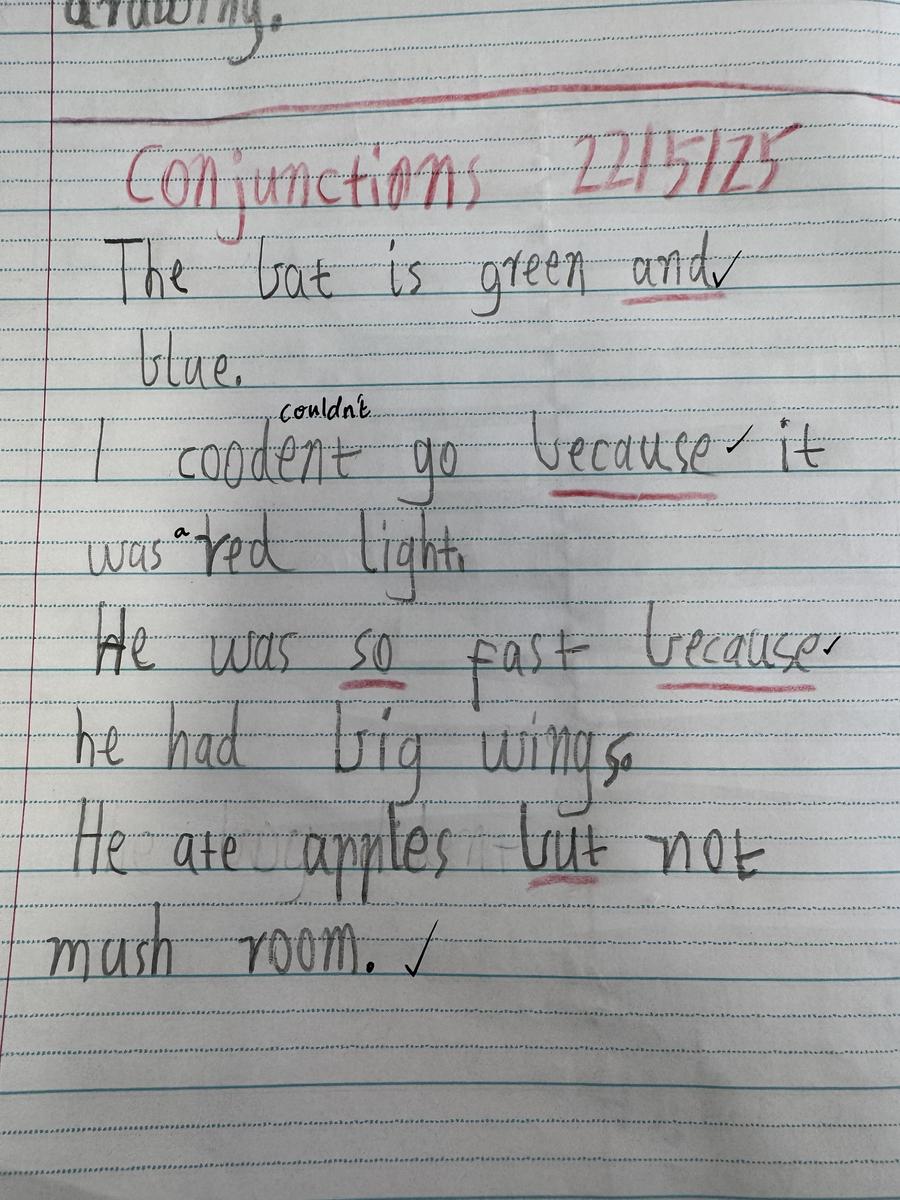 drawing.
Conjunctions 22/5/25
The bat is green and ✓
blue.
couldn't
I coodent go because ✓ it
was a red light.
He was so fast because ✓
he had big wings.
He ate apples but not
mush room. ✓